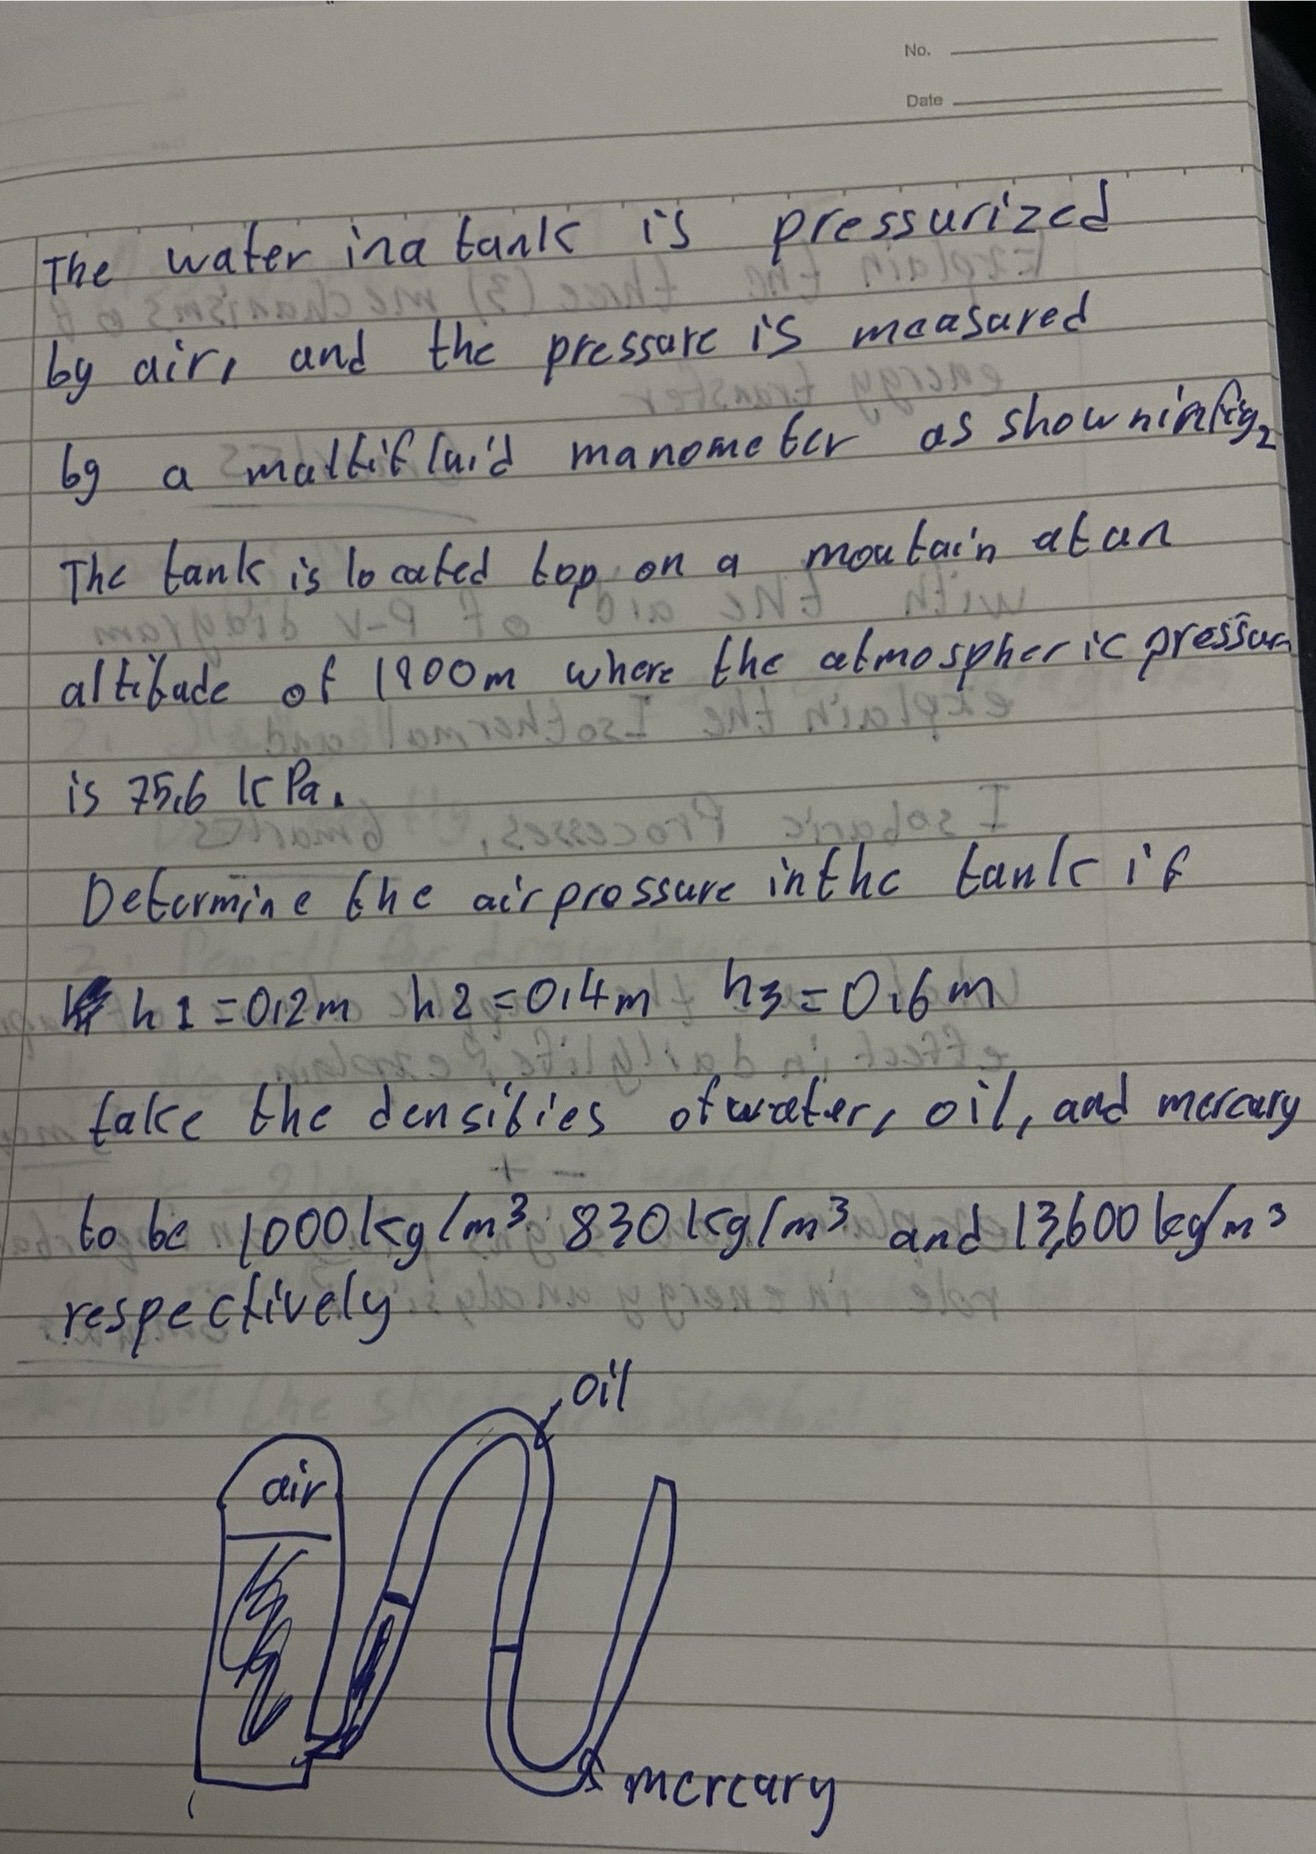 No.
Date
The water in a tank is pressurized
by air, and the pressure is measured
by a multifluid manometer as shown in fig 2
The tank is located top on a moutain at an
altitude of 1900m where the atmospheric pressure
is 75.6 kPa.
Determine the air pressure in the tank if
h1=0.2m h2=0.4m h3=0.6m
take the densities of water, oil, and mercury
to be 1000kg/m³ 830kg/m³ and 13,600kg/m³
respectively
oil
air
mercury